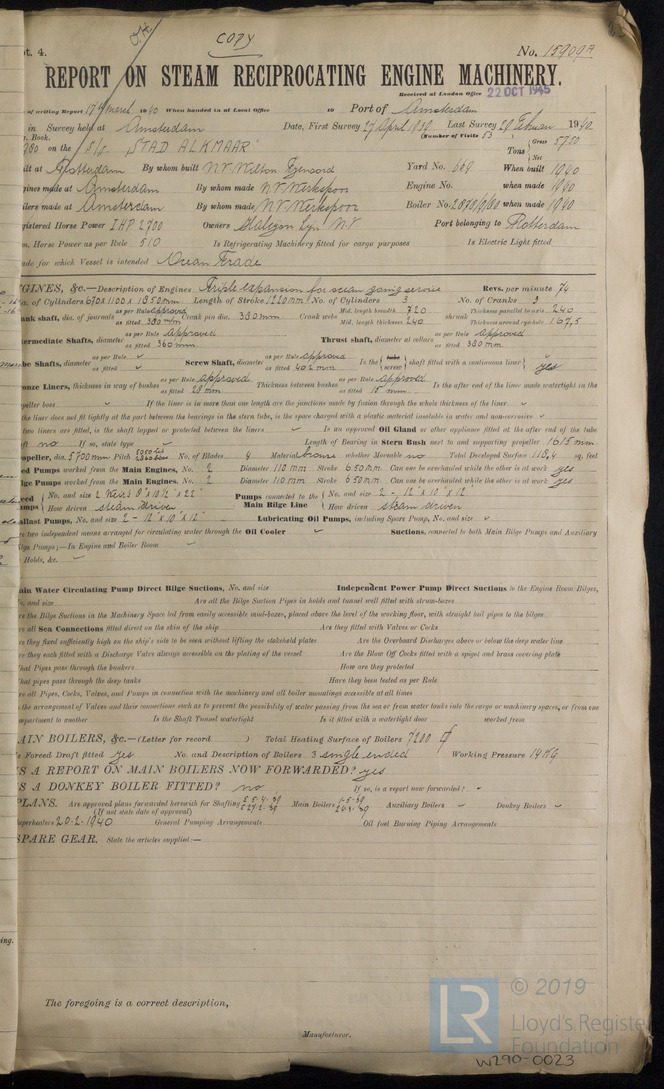 COPY
pt. 4.
No. 159099
REPORT ON STEAM RECIPROCATING ENGINE MACHINERY.
Received at London Office 22 OCT 1945
of writing Report 17th March 1940 When handed in at Local Office 19 Port of Amsterdam
in Survey held at Amsterdam Date, First Survey 27 April 1939 Last Survey 29 Februari 1940
Book. (Number of Visits 53)
on the S/S. STAD ALKMAAR Tons Gross 5750 Net
built at Rotterdam By whom built N.V. Wilton Fijenoord Yard No. 669 When built 1940
Engines made at Amsterdam By whom made N.V. Werkspoor Engine No. when made 1940
Boilers made at Amsterdam By whom made N.V. Werkspoor Boiler No. when made 1940
Registered Horse Power IHP 2700 Owners Halcyon Lyn N.V. Port belonging to Rotterdam
m. Horse Power as per Rule 510 Is Refrigerating Machinery fitted for cargo purposes Is Electric Light fitted
ade for which Vessel is intended Ocean Trade
GINES, &c.—Description of Engines Triple expansion for ocean going service Revs. per minute 74
Dia. of Cylinders 670x1100x1850mm Length of Stroke 1220mm No. of Cylinders 3 No. of Cranks 3
ank shaft, dia. of journals as per Rule approved as fitted 380mm Crank pin dia. 380mm Crank webs Mid. length breadth 720 Mid. length thickness 240 shrunk Thickness parallel to axis 240 Thickness around eye-hole 167,5
termediate Shafts, diameter as per Rule approved as fitted 360mm Thrust shaft, diameter at collars as per Rule approved as fitted 380mm
be Shafts, diameter as per Rule as fitted Screw Shaft, diameter as per Rule approved as fitted 402mm Is the tube screw shaft fitted with a continuous liner yes
onze Liners, thickness in way of bushes as per Rule approved as fitted Thickness between bushes as per Rule approved as fitted 15 mm Is the after end of the liner made watertight in the
peller boss If the liner is in more than one length are the junctions made by fusion through the whole thickness of the liner
the liner does not fit tightly at the part between the bearings in the stern tube, is the space charged with a plastic material insoluble in water and non-corrosive
two liners are fitted, is the shaft lapped or protected between the liners Is an approved Oil Gland or other appliance fitted at the after end of the tube
ft no If so, state type Length of Bearing in Stern Bush next to and supporting propeller 1615mm
opeller, dia. 5700mm Pitch No. of Blades 4 Material bronze whether Moveable no Total Developed Surface 110,4 sq. feet
ed Pumps worked from the Main Engines, No. 2 Diameter 110 mm Stroke 650mm Can one be overhauled while the other is at work yes
lge Pumps worked from the Main Engines, No. 2 Diameter 110 mm Stroke 650mm Can one be overhauled while the other is at work yes
eed umps No. and size 2 How driven steam driven Pumps connected to the Main Bilge Line No. and size 2 - 12"x10"x12" How driven steam driven
allast Pumps, No. and size 2 - 12"x10"x12" Lubricating Oil Pumps, including Spare Pump, No. and size
re two independent means arranged for circulating water through the Oil Cooler Suctions, connected to both Main Bilge Pumps and Auxiliary
ilge Pumps;—In Engine and Boiler Room
Holds, &c.
ain Water Circulating Pump Direct Bilge Suctions, No. and size Independent Power Pump Direct Suctions to the Engine Room Bilges,
o. and size Are all the Bilge Suction Pipes in holds and tunnel well fitted with strum-boxes
re the Bilge Suctions in the Machinery Space led from easily accessible mud-boxes, placed above the level of the working floor, with straight tail pipes to the bilges
re all Sea Connections fitted direct on the skin of the ship Are they fitted with Valves or Cocks
re they fixed sufficiently high on the ship's side to be seen without lifting the stokehold plates Are the Overboard Discharges above or below the deep water line
re they each fitted with a Discharge Valve always accessible on the plating of the vessel Are the Blow Off Cocks fitted with a spigot and brass covering plate
hat Pipes pass through the bunkers How are they protected
hat pipes pass through the deep tanks Have they been tested as per Rule
re all Pipes, Cocks, Valves, and Pumps in connection with the machinery and all boiler mountings accessible at all times
the arrangement of Valves and their connections such as to prevent the possibility of water passing from the sea or from water tanks into the cargo or machinery spaces, or from one
mpartment to another Is the Shaft Tunnel watertight Is it fitted with a watertight door worked from
AIN BOILERS, &c.—(Letter for record ) Total Heating Surface of Boilers 7200
s Forced Draft fitted yes No. and Description of Boilers 3 single ended Working Pressure 14 KG
S A REPORT ON MAIN BOILERS NOW FORWARDED? yes
S A DONKEY BOILER FITTED? no If so, is a report now forwarded?
PLANS. Are approved plans forwarded herewith for Shafting Main Boilers Auxiliary Boilers Donkey Boilers
(If not state date of approval)
uperheaters 20-2-1940 General Pumping Arrangements Oil fuel Burning Piping Arrangements
SPARE GEAR. State the articles supplied:—
ing.
The foregoing is a correct description,
Manufacturer.
LR © 2019
Lloyd's Registe
Foundation
W290-0023